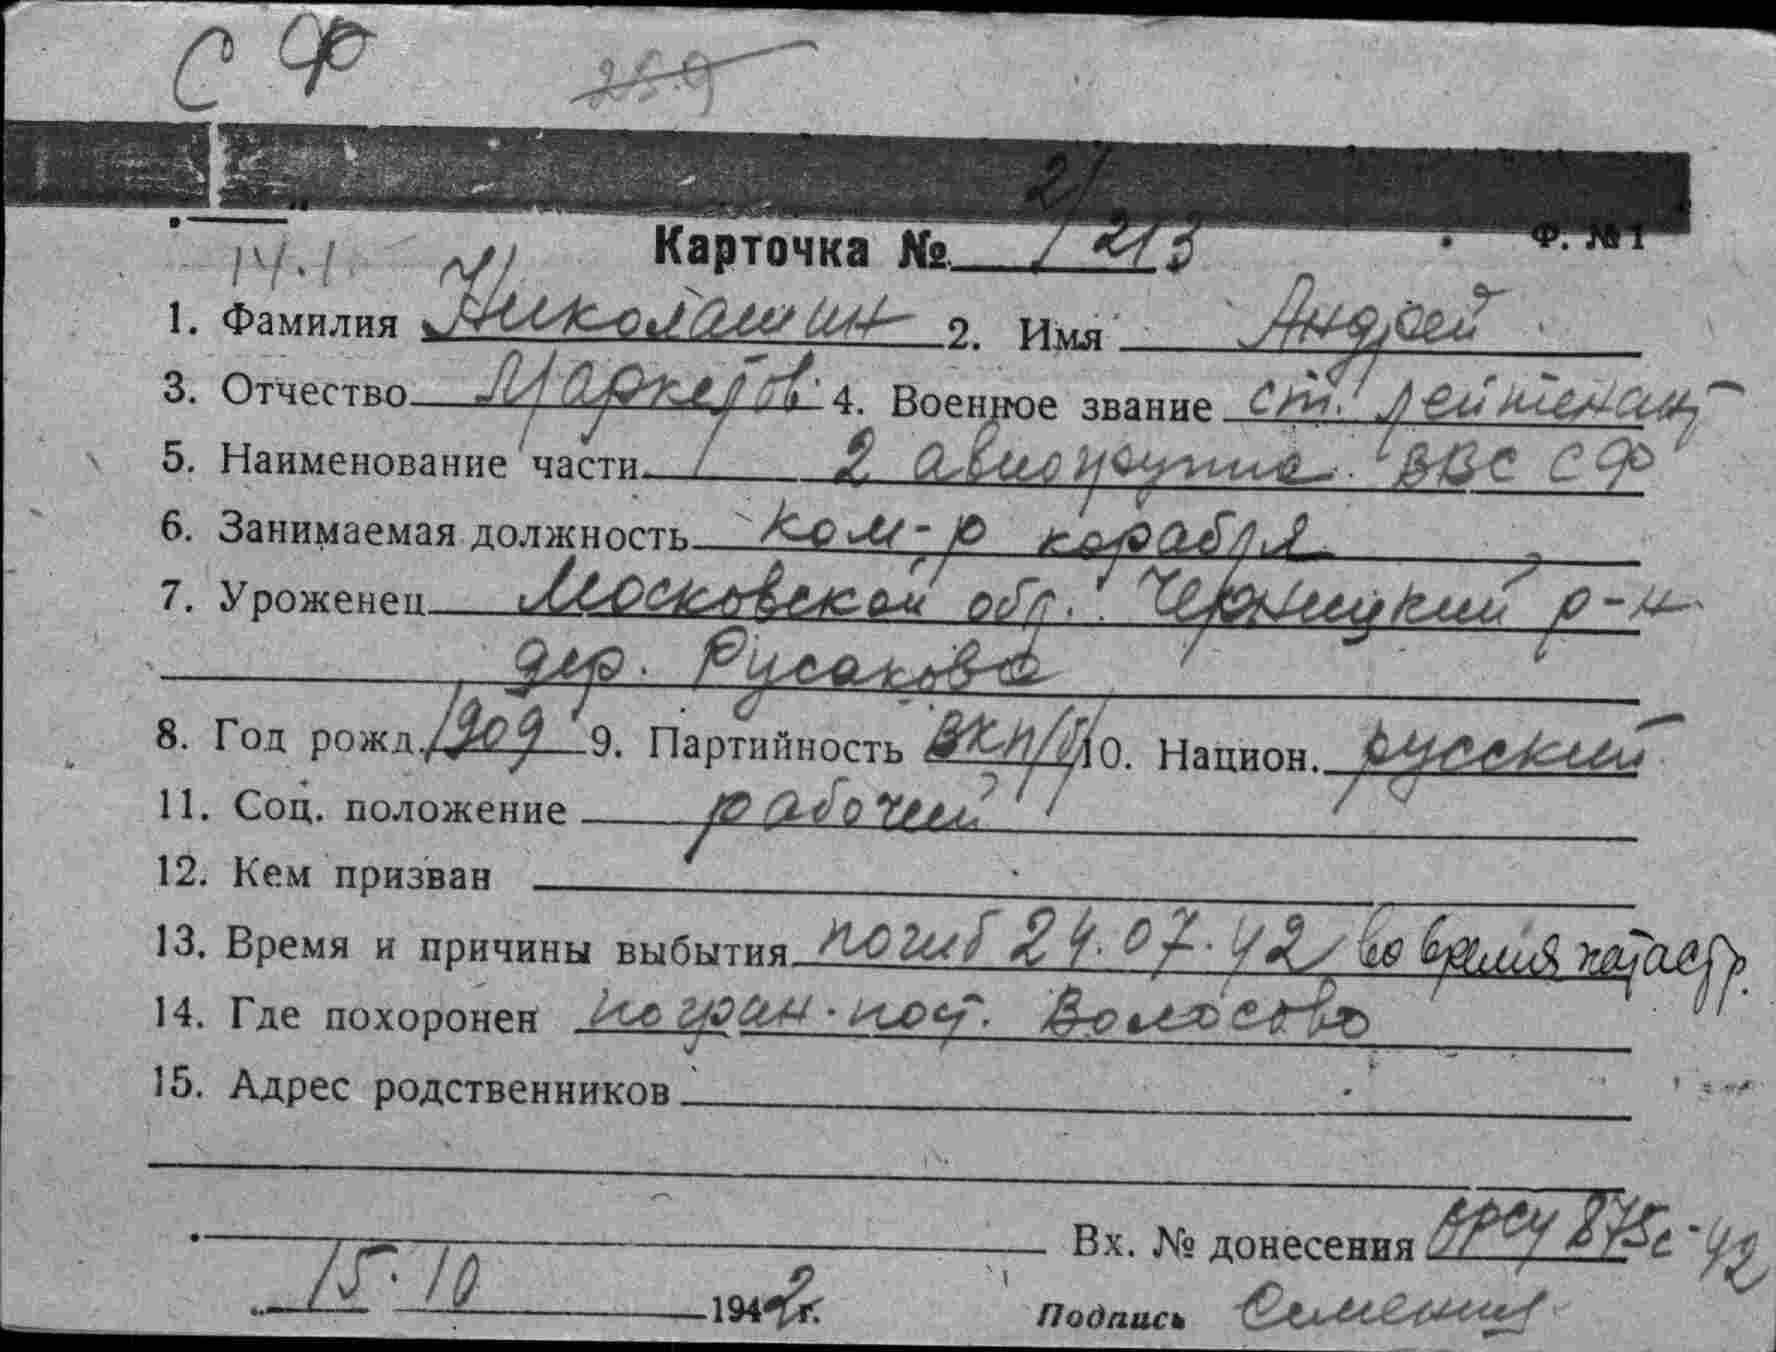 С Ф
Ф. № 1
Карточка № 2/213
14.1
1. Фамилия Николашин 2. Имя Андрей
3. Отчество Маркетов 4. Военное звание ст. лейтенант
5. Наименование части 2 авиогруппа ВВС СФ
6. Занимаемая должность ком-р корабля
7. Уроженец Московской обл. Черницкий р-н
дер. Русаково
8. Год рожд. 1909 9. Партийность ВКП/б/ 10. Национ. русский
11. Соц. положение рабочий
12. Кем призван
13. Время и причины выбытия погиб 24.07.42 во время катастр.
14. Где похоронен погран. пост.
15. Адрес родственников
Вх. № донесения 875с-42
15.10 1942 г. Подпись